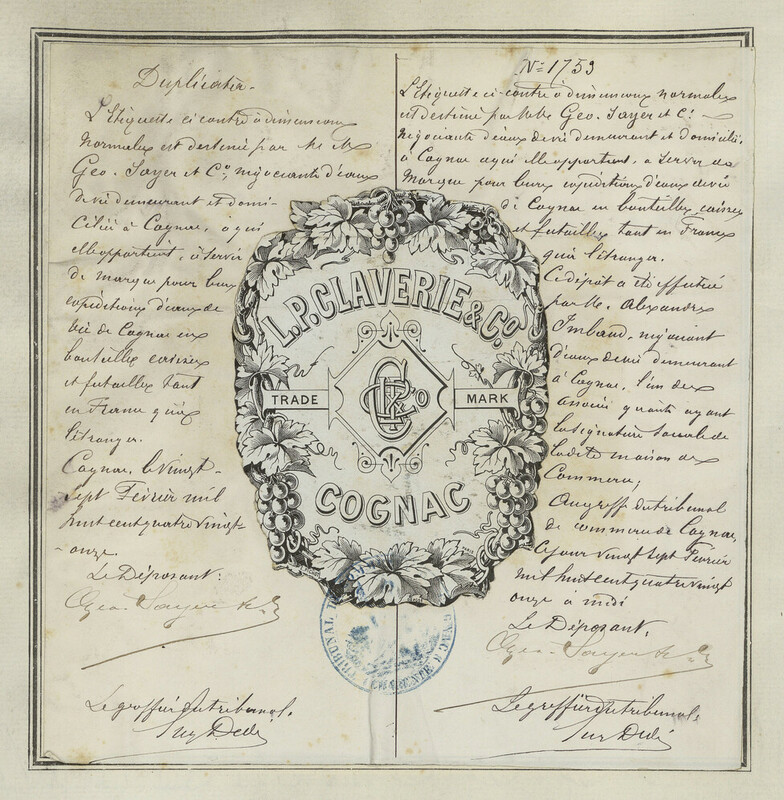 Duplicata.
L'Etiquette ci contre à dimensions
normales est destinée par
Geo. Sayer et Co, négociants d'eaux
de vie demeurant et domi-
ciliés à Cognac, a qui
elle appartient, à servir
de marque pour leurs
expéditions d'eaux de
vie de Cognac en
bouteilles caisses
et futailles tant
en France qu'à
l'étranger.
Cognac, le vingt-
sept Février mil
huit cent quatre vingt-
onze.
Le Déposant:
Geo. Sayer & Co
Le greffier du tribunal.
No 1759
L'Etiquette ci-contre à dimensions normales
est destinée par Geo. Sayer et Co.
négociants d'eaux de vie demeurant et domiciliés,
à Cognac a qui elle appartient, a servir de
marque pour leurs expéditions d'eaux de vie
de Cognac en bouteilles, caisses
et futailles tant en France
qu'à l'étranger.
Ce dépôt a été effectué
par M. Alexandre
négociant
d'eaux de vie demeurant
à Cognac, l'un des
associés ayant
la signature sociale de
ladite maison de
Commerce;
Au greffe du tribunal
de commerce de Cognac,
ce jour vingt sept Février
mil huit cent quatre vingt
onze à midi
Le Déposant,
Geo. Sayer & Co
Le greffier du tribunal
L.P. CLAVERIE & Co
TRADE MARK
COGNAC
TRIBUNAL
CHARENTE